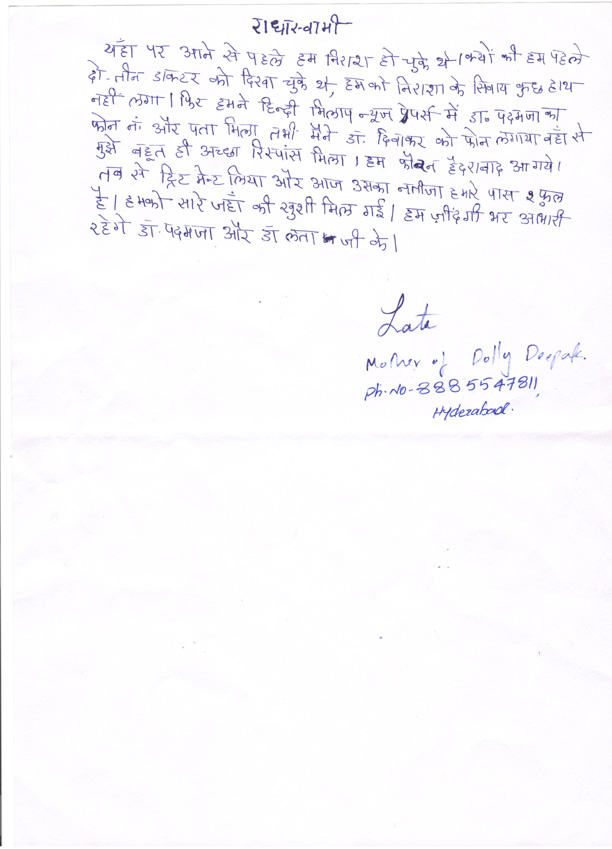 राधास्वामी
यहाँ पर आने से पहले हम निराश हो चुके थे। क्यों की हम पहले
दो-तीन डाक्टर को दिखा चुके थे, हमको निराशा के सिवाय कुछ हाथ
नहीं लगा। फिर हमने हिन्दी मिलाप न्यूज पेपर्स में डा॰ पदमजा का
फोन नं और पता मिला तभी मैंने डॉ. दिवाकर को फोन लगाया वहाँ से
मुझे बहूत ही अच्छा रिस्पांस मिला। हम फौरन हैदराबाद आ गये।
तब से ट्रिटमेन्ट लिया और आज उसका नतीजा हमारे पास २ फुल
है। हमको सारे जहाँ की खुशी मिल गई। हम ज़ींदगी भर आभारी
रहेगे डॉ. पदमजा और डॉ लता जी के।
Lata
Mother of Dolly Deepak.
Ph.No-8885547811,
Hyderabad.